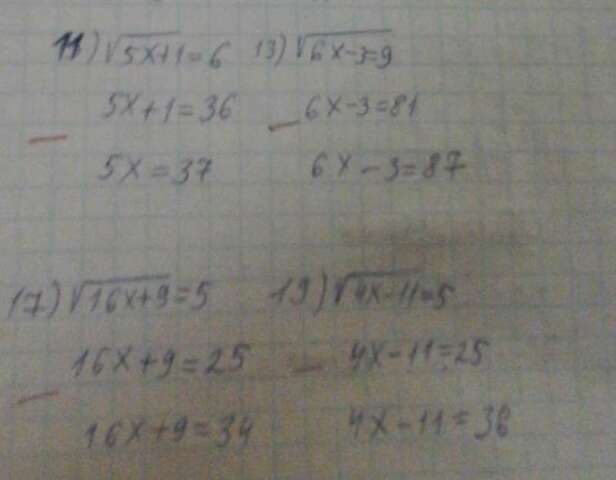 11) √5x+1=6 13) √6x-3=9
5x+1=36 6x-3=81
5x=37 6x-3=87
17) √16x+9=5 19) √4x-11=5
16x+9=25 4x-11=25
16x+9=34 4x-11=36